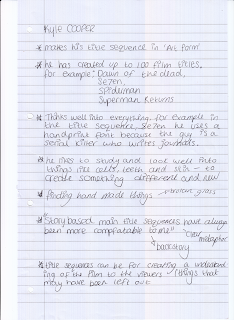 Kyle COOPER
* makes his title sequence in 'Art form'
* he has created up to 100 film titles,
for example: Dawn of the dead,
Se7en,
Spiderman
Superman Returns
* Thinks well into everything, for example in
the title sequence, Se7en he uses a
handprint font because the guy is a
serial killer who writes journals.
* he likes to study and look well into
things like cells, teeth and skin - to
create something different and new
* finding hand made things
* "Story based main title sequences have always
been more comfortable to me"
clear
metaphor
backstory
* title sequences can be for creating a
of the film to the viewers / things that
may have been left out